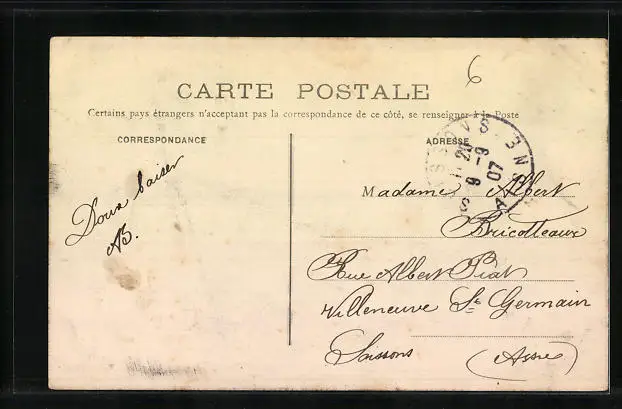 6
CARTE POSTALE
Certains pays étrangers n'acceptant pas la correspondance de ce côté, se renseigner à la Poste
CORRESPONDANCE
ADRESSE
Doux baiser
AB.
9 - 9
07
Madame Albert
Bricotteaux
Rue Albert Piat
Villeneuve St Germain
Soissons (Aisne)